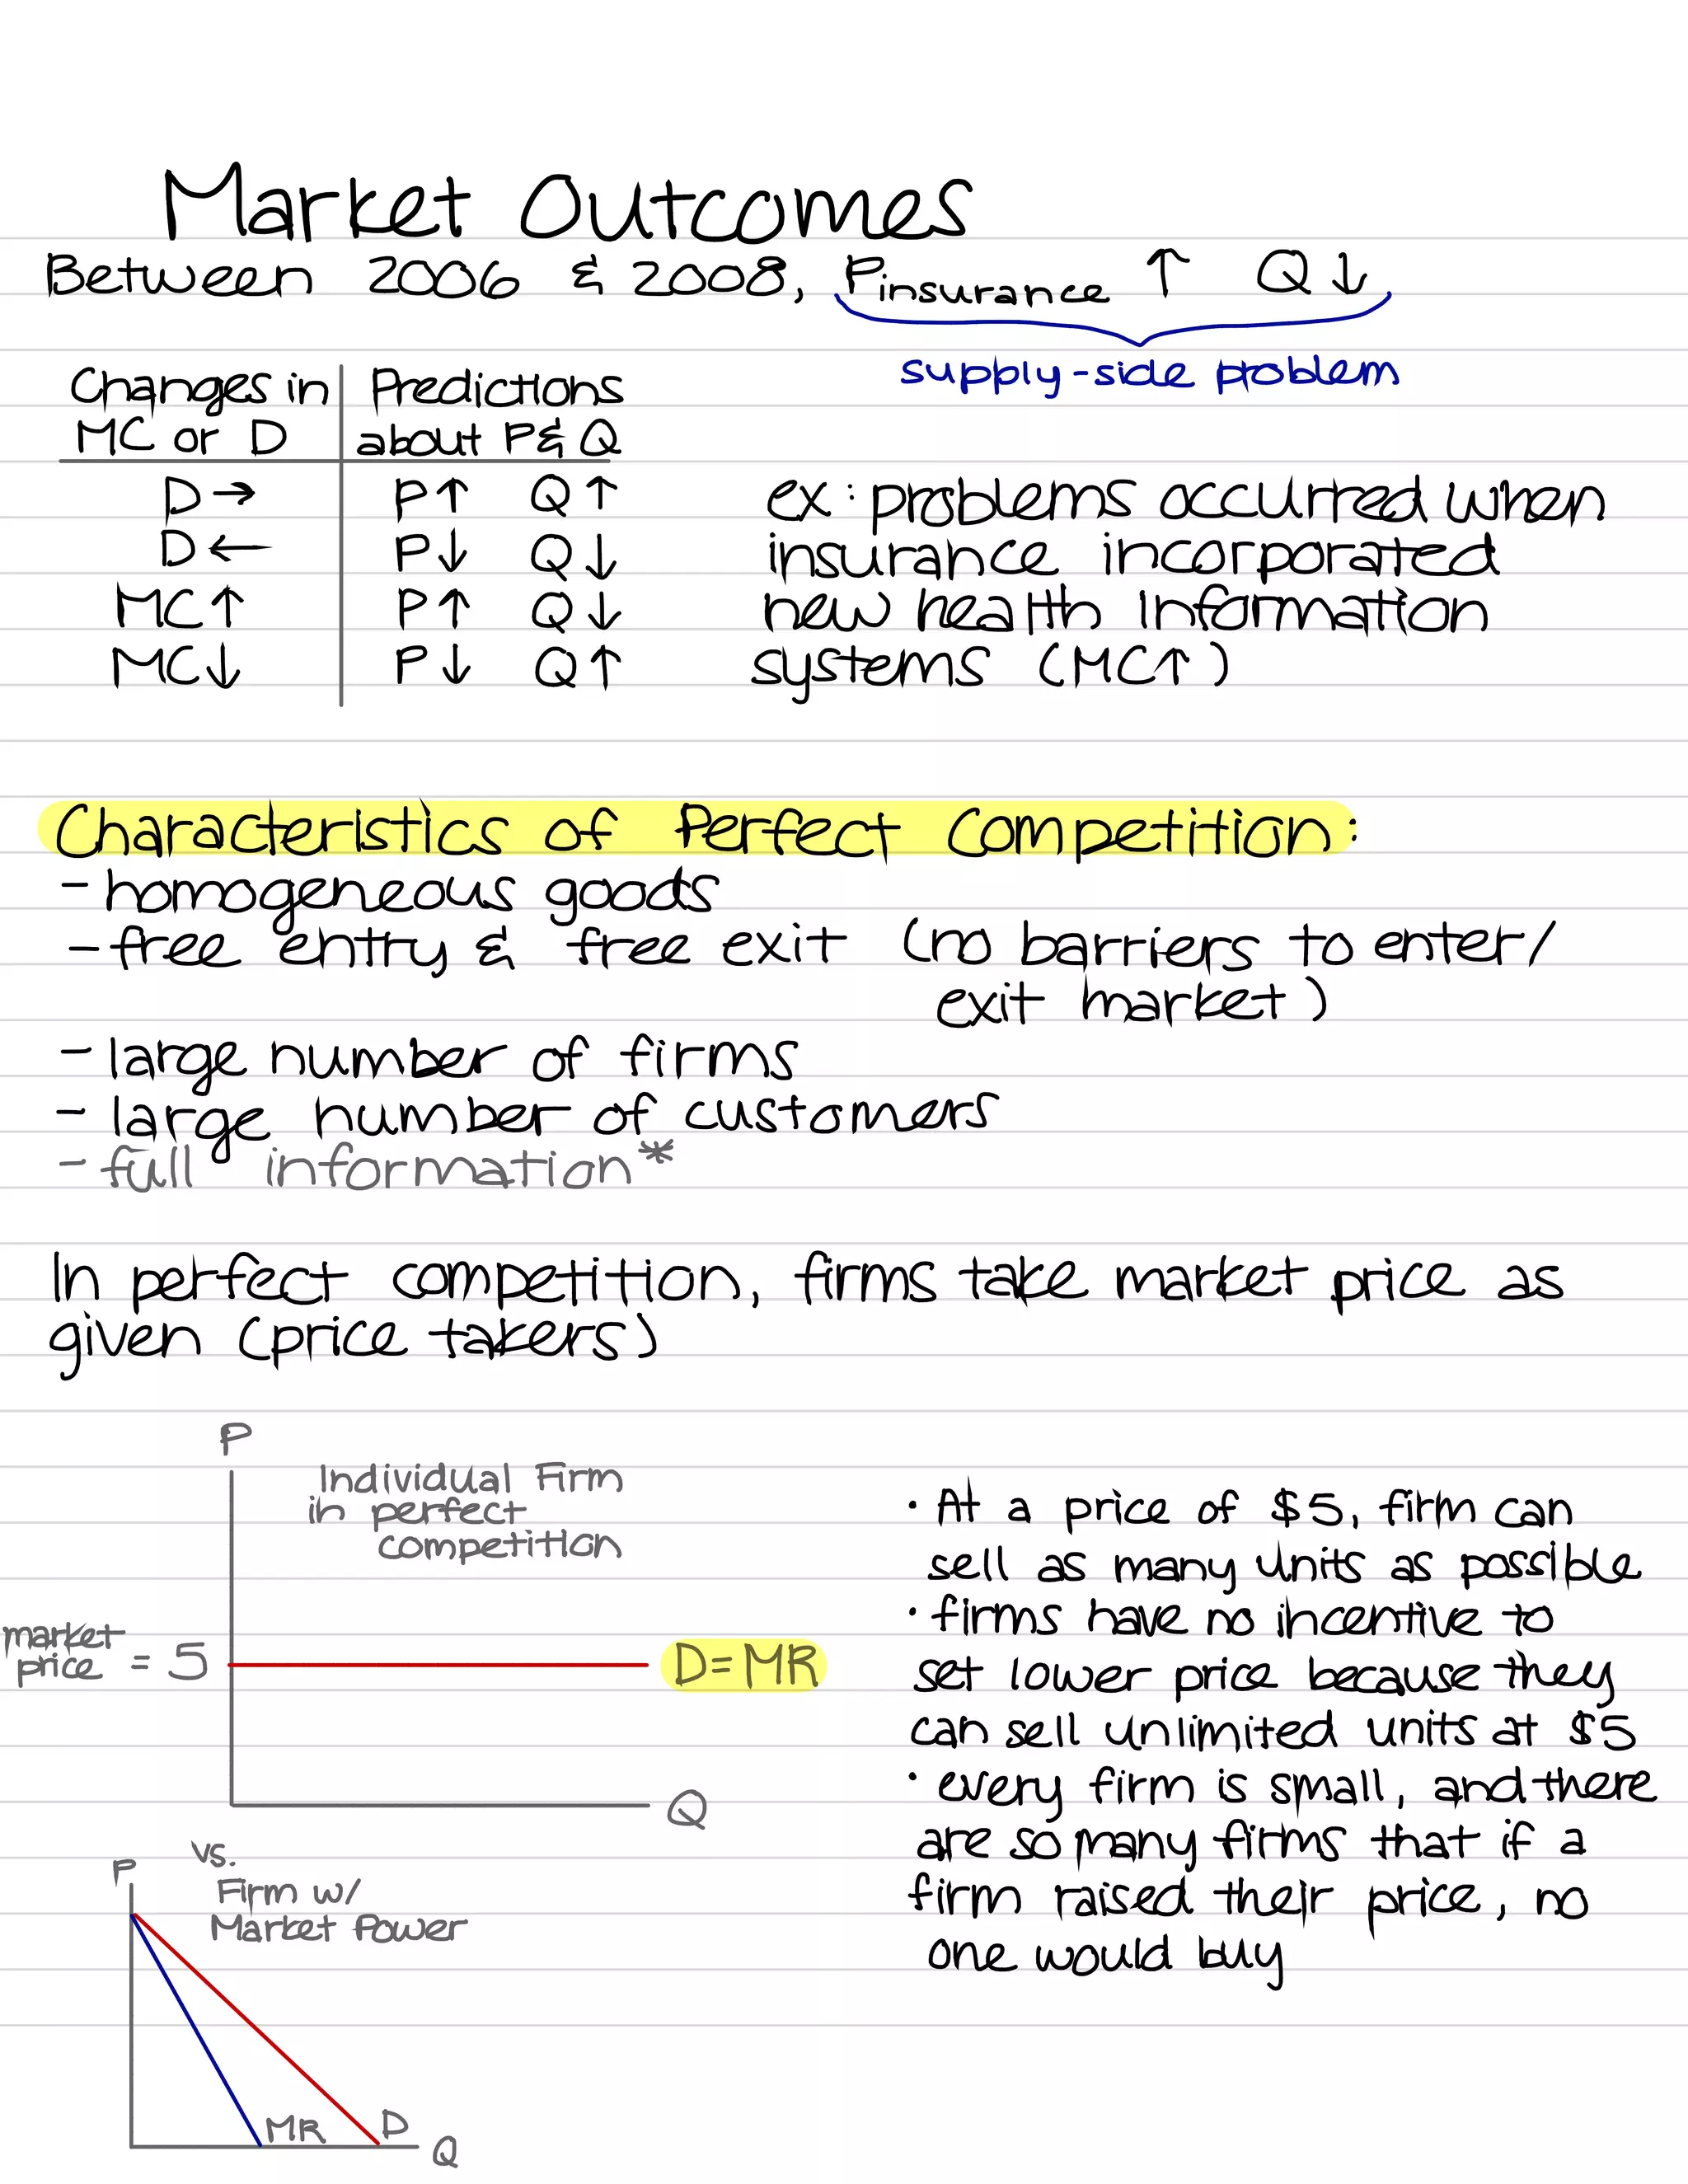 Market Outcomes
Between 2006 & 2008, Pinsurance ↑ Q ↓
supply-side problem
Changes in MC or D | Predictions about P & Q
D → P↑ Q↑
D ← P↓ Q↓
MC↑ P↑ Q↓
MC↓ P↓ Q↑
ex: problems occurred when
insurance incorporated
new health information
systems (MC↑)
Characteristics of Perfect Competition:
- homogeneous goods
- free entry & free exit (no barriers to enter/
exit market)
- large number of firms
- large number of customers
- full information*
In perfect competition, firms take market price as
given (price takers)
P
Individual Firm
in perfect
competition
market
price = 5
D=MR
Q
• At a price of $5, firm can
sell as many units as possible
• firms have no incentive to
set lower price because they
can sell unlimited units at $5
• every firm is small, and there
are so many firms that if a
firm raised their price, no
one would buy
vs.
P
Firm w/
Market Power
MR
D
Q